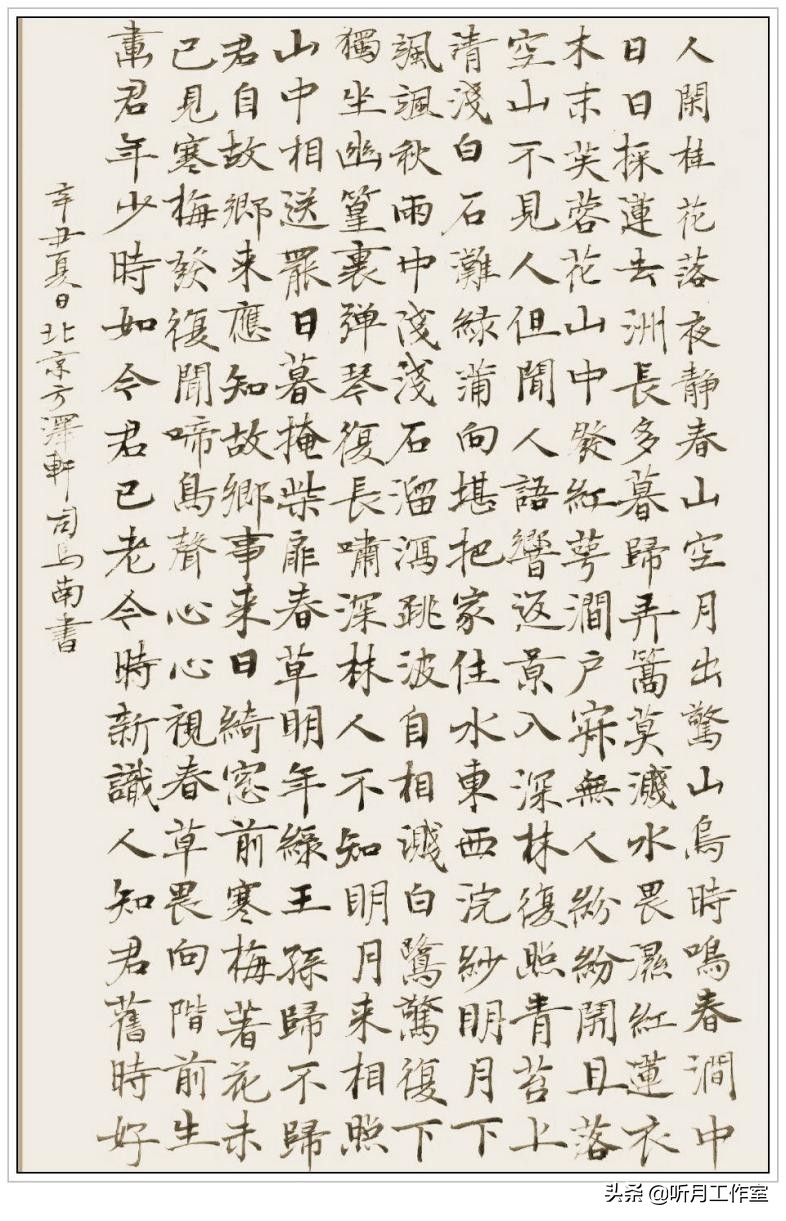 人閑桂花落夜靜春山空月出驚山鳥時鳴春澗中
日日採蓮去洲長多暮歸弄篙莫濺水畏濕紅蓮衣
木末芙蓉花山中發紅萼澗户寂無人紛紛開且落
空山不見人但聞人語響返景入深林復照青苔上
清淺白石灘綠蒲向堪把家住水東西浣紗明月下
颯颯秋雨中淺淺石溜瀉跳波自相濺白鷺驚復下
獨坐幽篁裏弹琴復長嘯深林人不知明月来相照
山中相送罷日暮掩柴扉春草明年綠王孫歸不歸
君自故鄉来應知故鄉事来日綺窓前寒梅著花未
已見寒梅發復聞啼鳥聲心心視春草畏向階前生
畫君年少時如今君已老今時新識人知君舊時好
辛丑夏日北京方澤軒司馬南書
头条 @听月工作室